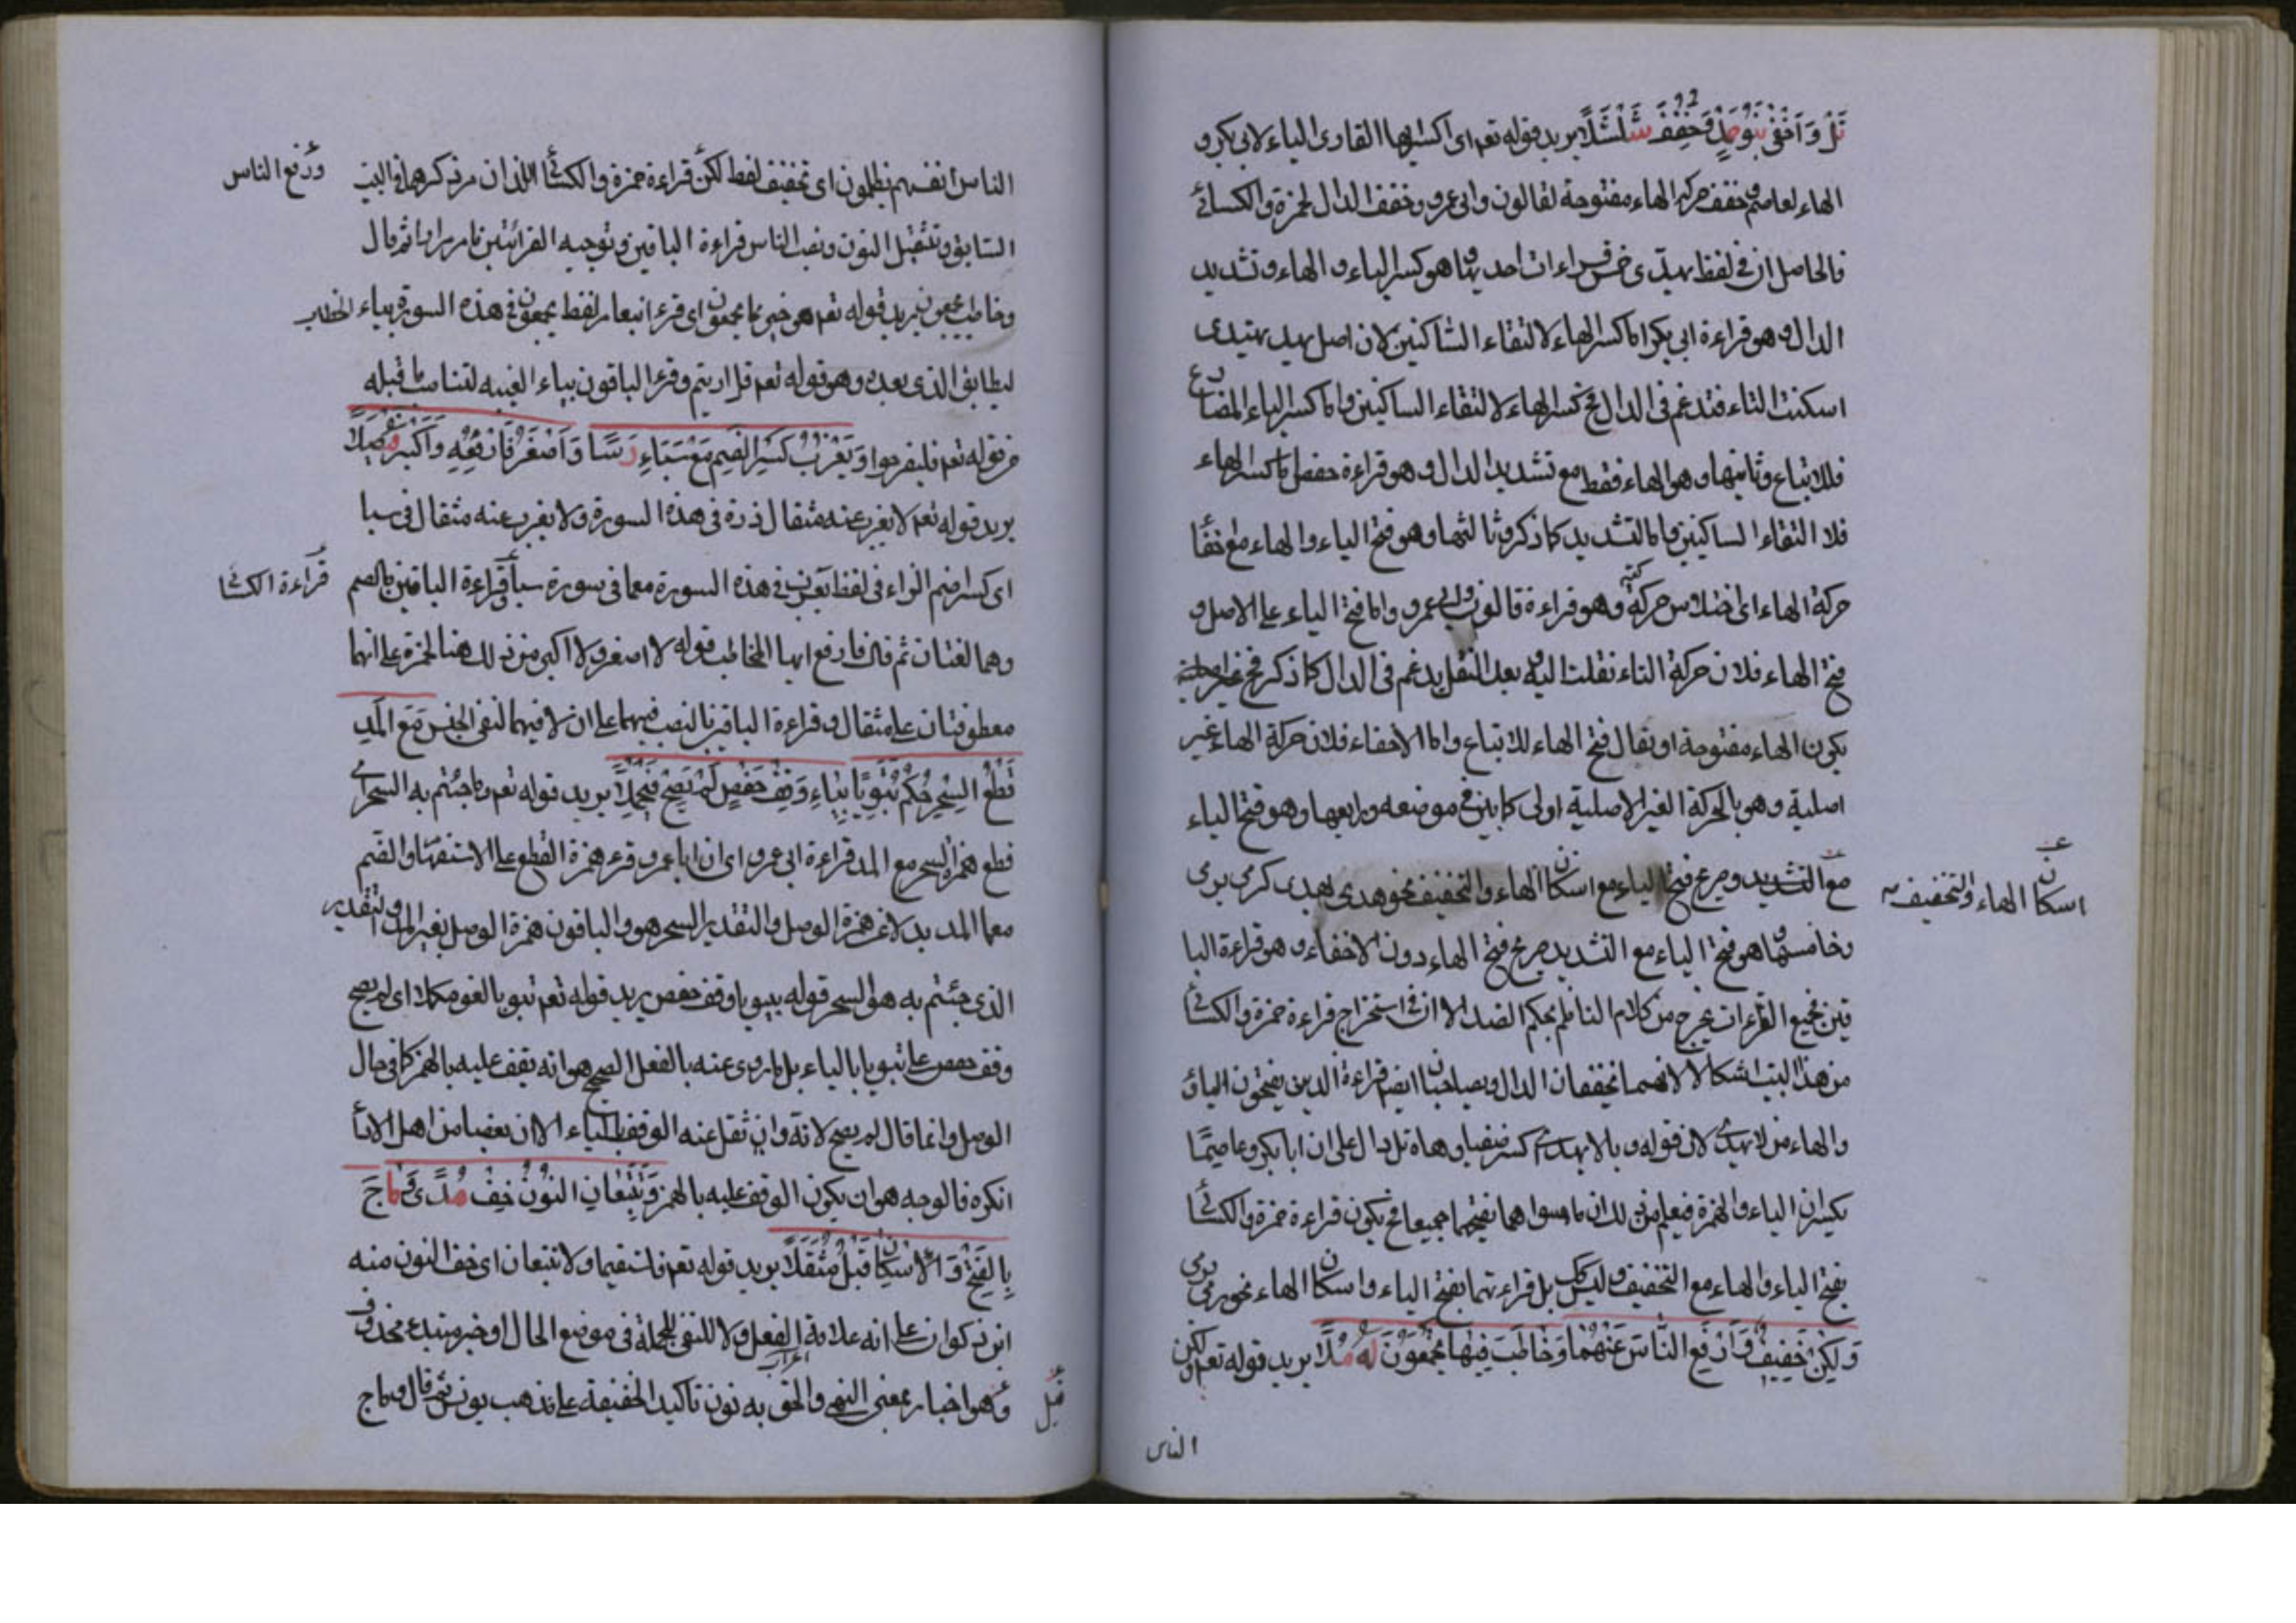 نل وأخفى بنو حمد وخفف شلشلا يريد قوله تعم اى اكسر ايها القارى الياء لابى بكر و
الهاء لعاصم وخفف حركة الهاء مفتوحة لقالون وابى عمرو وخفف الدال لحمزة والكسائى
فالحاصل ان فى لفظ يهدى خمس قراءات احديها ما هو كسر الياء والهاء وتشديد
الدال وهو قراءة ابى بكر اما كسر الهاء لالتقاء الساكنين لان اصل يهدى يهتدى
اسكنت التاء فتدغم فى الدال فح كسر الهاء لالتقاء الساكنين واما كسر الياء المضارع
فللاتباع وثانيها وهو الهاء فقط مع تشديد الدال وهو قراءة حفص اما كسر الهاء
فلالتقاء الساكنين واما التشديد كما ذكر وثالثها وهو فتح الياء والهاء مع خفاء
حركة الهاء اى اختلاس حركته وهو قراءة قالون وابى عمرو واما فتح الياء على الاصل و
فتح الهاء فلان حركة التاء نقلت اليه وبعد النقل يدغم فى الدال كما ذكر فح
يكون الهاء مفتوحة او يقال فتح الهاء للاتباع واما الاخفاء فلان حركة الهاء غير
اصلية وهو بالحركة الغير الاصلية اولى كما بين فى موضعه ورابعها وهو فتح الياء
مع التشديد وح مع فتح الياء مع اسكان الهاء والتخفيف نحو هدى يهدى كرمى يرمى
اسكان الهاء والتخفيف
وخامسها ما هو فتح الياء مع التشديد مع فتح الهاء دون الاخفاء وهو قراءة البا
قين فجميع القراءات يخرج من كلام الناظم بحكم الضد الا ان فى استخراج قراءة حمزة والكسائى
من هذا البيت اشكالا لانهما يخففان الدال ويصاحبان ايضا قراءة الذين يفتحون الياء
والهاء من لا يهدى لان قوله و يا لا يهدى اكسر صفيا وهاه نل دال على ان ابا بكر وعاصما
يكسران الياء والهمزة فيعلم من ذلك ان ما سواهما يفتحهما جميعا فح يكون قراءة حمزة والكسائى
بفتح الياء والهاء مع التخفيف وليس كك بل قراءتهما بفتح الياء واسكان الهاء نحو يرمى
ولكن خفيف وارفع الناس عنهما وخاطب فيها يجمعون له ملا يريد قوله تعم ولكن
الناس
الناس انفسهم يظلمون اى تخفيف لفظ لكن قراءة حمزة والكسائى اللذان مر ذكرهما فى البيت
ورفع الناس
السابق وتثقيل النون ونصب الناس قراءة الباقين وتوجيه القرائتين مامر مرارا ثم قال
وخاطب يجمعون يريد قوله تعم هو خير مما يجمعون اى قرء ابن عامر لفظ يجمعون فى هذه السورة بياء الخطاب
ليطابق الذى بعده وهو قوله تعم قل ارءيتم وقرء الباقون بياء الغيبه لتناسب ما قبله
من قوله تعم فليفرحوا ويعزب كسر الضم مع سبأ رسا واصغر فارفعه واكبر فيصلا
يريد قوله تعم لا يعزب عنه مثقال ذرة فى هذه السورة ولا يعزب عنه مثقال فى سبا
اى كسر ضم الزاء فى لفظ يعزب فى هذه السورة معا فى سورة سبأ وقراءة الباقين بالضم
قراءة الكسائى
وهما لغتان ثم قال فارفع ايها المخاطب قوله لا اصغر ولا اكبر من ذلك هنا لحمزة على انهما
معطوفتان على مثقال وقراءة الباقين بالنصب فيهما على ان لا فيهما لنفى الجنس مع المد
قطع السحر حكم تبويا بياء وقف حفص لم يصح فيحملا يريد قوله تعم ما جئتم به السحر اى
قطع همزة السحر مع المد قراءة ابى عمرو اى ان ابا عمرو قرء همزة القطع على الاستفهام والضم
معا المد بدلا عن همزة الوصل والتقدير السحر هو والباقون همزة الوصل بغير المد والتقدير
الذى جئتم به هو السحر قوله تبويا وقف حفص يريد قوله تعم تبويا لقومكما اى لم يصح
وقف حفص على تبويا بالياء بل ما روى عنه بالفعل الصحيح هو انه يقف عليه بالهمز كما فى حال
الوصل وانما قال لم يصح لانه وان نقل عنه الوقف بالياء الا ان بعضا من اهل الاداء
انكره فالوجه هو ان يكون الوقف عليه بالهمز وتتبعان النون خف مدى وماج
بالفتح والاسكان قبل مثقلا يريد قوله تعم فاستقيما ولا تتبعان اى خف النون منه
ابن ذكوان على انه علامة اعراب الفعل ولا للنفى للجملة فى موضع الحال او خبر مبتدء محذوف
وهو اخبار بمعنى النهى والحق به نون تاكيد الخفيفة على مذهب يونس ثم قال وماج
قبل